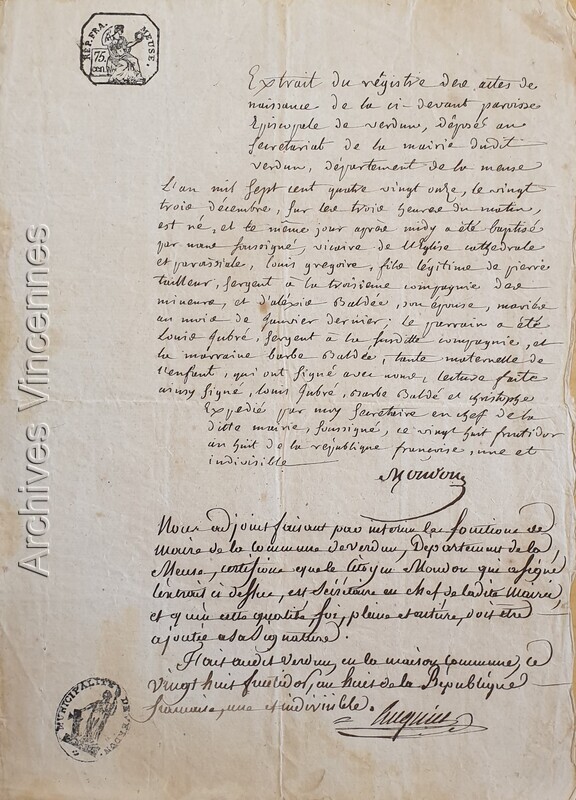 RÉP. FRA.
MEUSE.
75.
cen.
Extrait du régistre des actes de
naissance de la ci-devant paroisse
Episcopale de verdun, déposé au
Secretariat de la mairie dudit
verdun, département de la meuse
L'an mil Sept cent quatre vingt onze, le vingt
trois décembre, sur les trois heures du matin,
est né, et le même jour après midy a été baptisé
par nous soussigné, vicaire de l'Eglise cathédrale
et paroissiale, louis gregoire, fils légitime de pierre
tailleur, sergent à la troisième compagnie des
mineurs, et d'aléxis Baldée, son épouse, mariés
au mois de Janvier dernier; le parrain a été
Louis Aubré, sergent à la susditte compagnie, et
la marraine barbe Baldée, tante maternelle de
l'enfant, qui ont signé avec nous, lecture faite
ainsy signé, louis Aubré, Barbe Baldé et christophe
Expedié par moy Secrétaire en chef de la
ditte mairie, soussigné, ce vingt huit fructidor
an huit de la république françoise, une et
indivisible
Moudon
Nous adjoint faisant par interim les fonctions de
Maire de la commune de verdun, Département de la
Meuse, certifions que le Citoyen Moudon qui a signé
l'extrait ci dessus, est Sécrétaire en Chef de la dite Mairie,
et qu'en cette qualité foi, pleine et entière, doit être
ajoutée a sa Signature.
Fait audit verdun, en la maison Commune, ce
vingt huit fructidor, an huit de la République
francaise, une et indivisible.
MUNICIPALITÉ DE VERDUN
Archives Vincennes